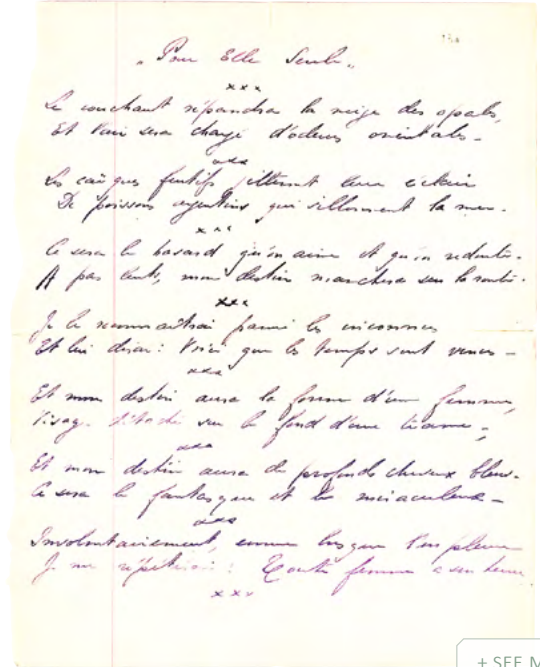 136
„ Pour Elle Seule „
x x x
Le couchant répandra la neige des opals,
Et l'air sera chargé d'odeurs orientales –
x x x
Les caïques furtifs jetteront leur éclair
De poissons argentins qui sillonnent la mer.
x x x
Ce sera le hasard qu'on aime et qu'on redoute –
A pas lents, mon destin marchera sur la route –
x x x
Je le reconnaîtrai parmi les inconnus
Et lui dirai : Voici que les temps sont venus –
x x x
Et mon destin aura la forme d'une femme,
Visage sur le fond d'une
x x x
Et mon destin aura de profonds cheveux bleus –
Ce sera le fantasque et le miraculeux –
x x x
Involontairement, comme lorsque l'on pleure
Je me répéterai : Toute femme a son heure
x x x
+ SEE M